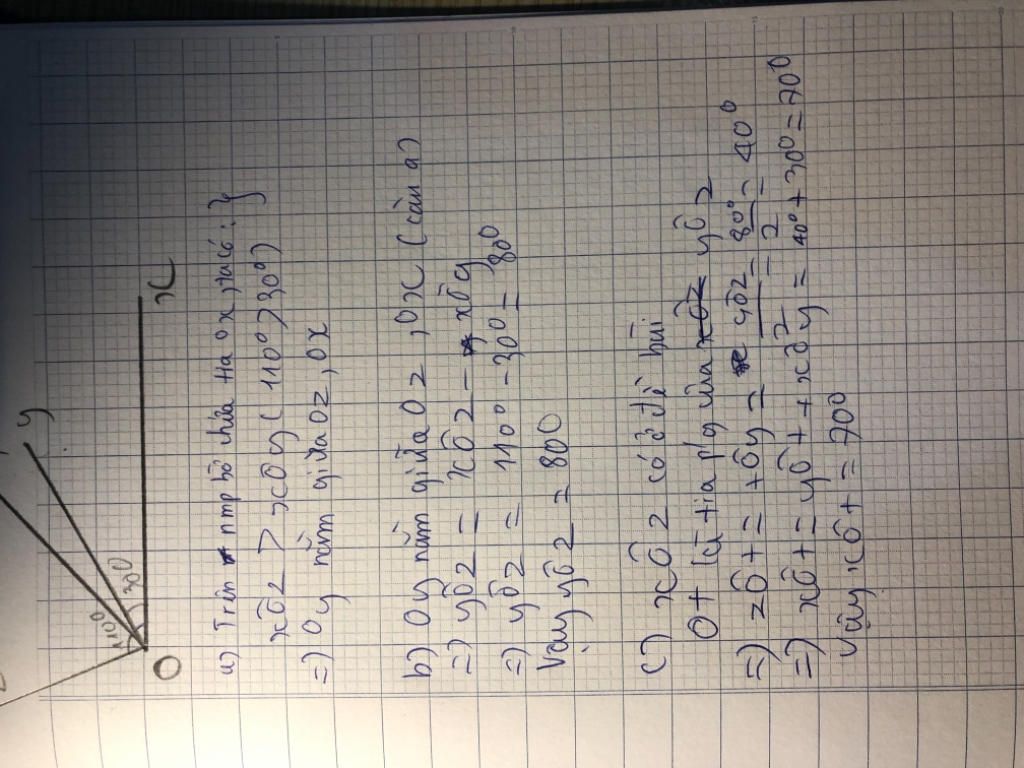 y
110⁰
30⁰
O
x
a) Trên nmp bờ chứa tia Ox, ta có: }
xÔz > xÔy (110⁰ > 30⁰)
=) Oy nằm giữa Oz, Ox
b) Oy nằm giữa Oz, Ox (câu a)
=) yÔz = xÔz - xÔy
=) yÔz = 110⁰ - 30⁰ = 80⁰
Vậy yÔz = 80⁰
c) xÔz có ở đề bài
Ot là tia p/g của yÔz
=) zÔt = tÔy = yÔz/2 = 80⁰/2 = 40⁰
=) xÔt = yÔt + xÔy = 40⁰ + 30⁰ = 70⁰
Vậy xÔt = 70⁰